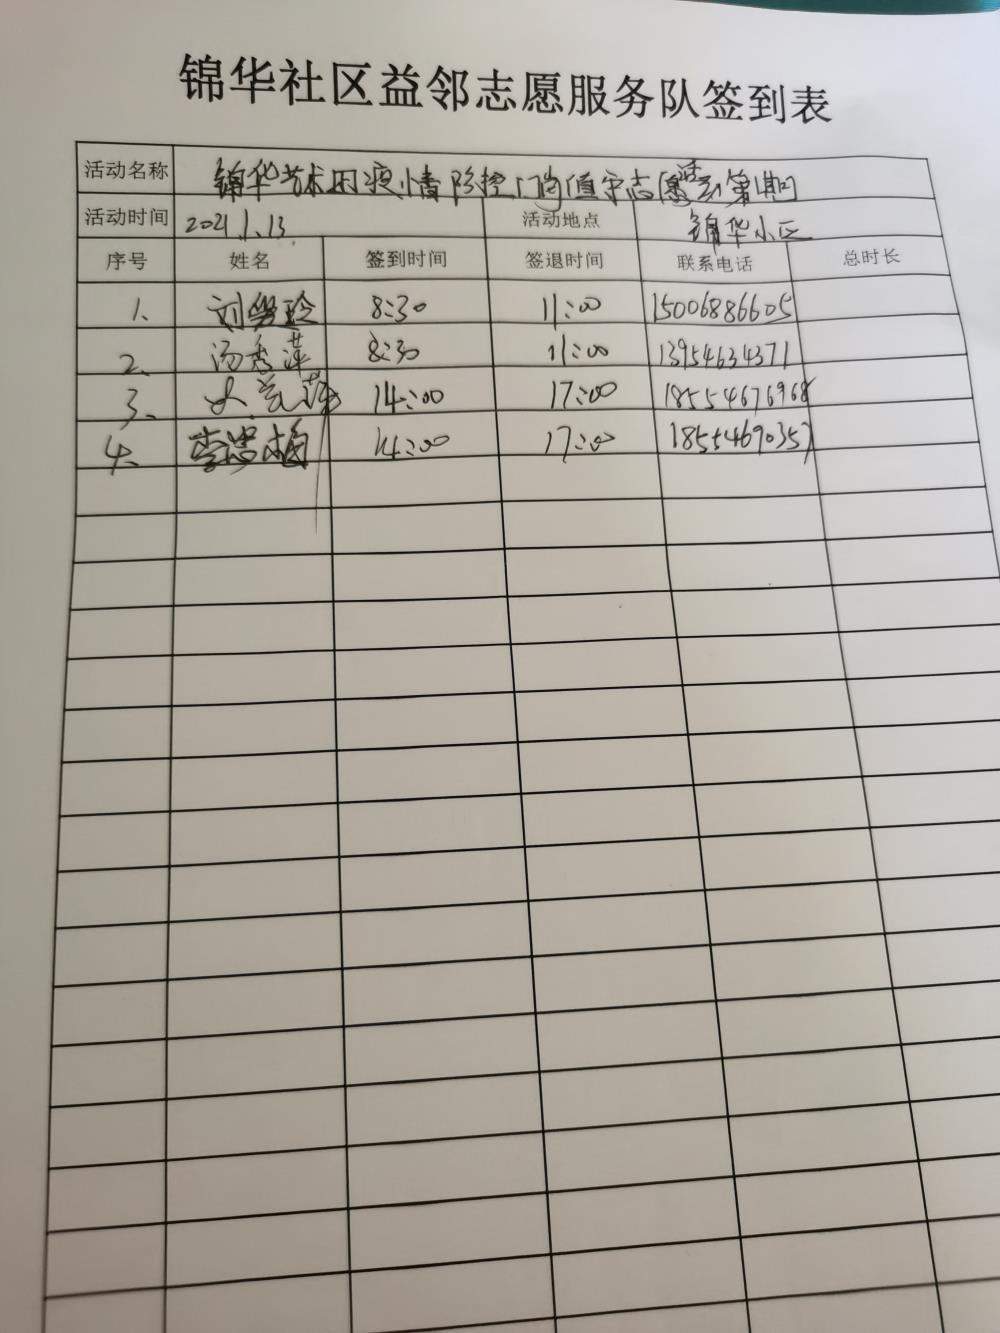 锦华社区益邻志愿服务队签到表
活动名称 锦华艺术园疫情防控门岗值守志愿活动第1期
活动时间 2021.1.13. 活动地点 锦华小区
序号 姓名 签到时间 签退时间 联系电话 总时长
1、 刘 玲 8:30 11:00 15006886605
2、 汤秀萍 8:30 11:00 13954634371
3、 14:00 17:00 18554676968
4、 李忠梅 14:00 17:00 18554690357